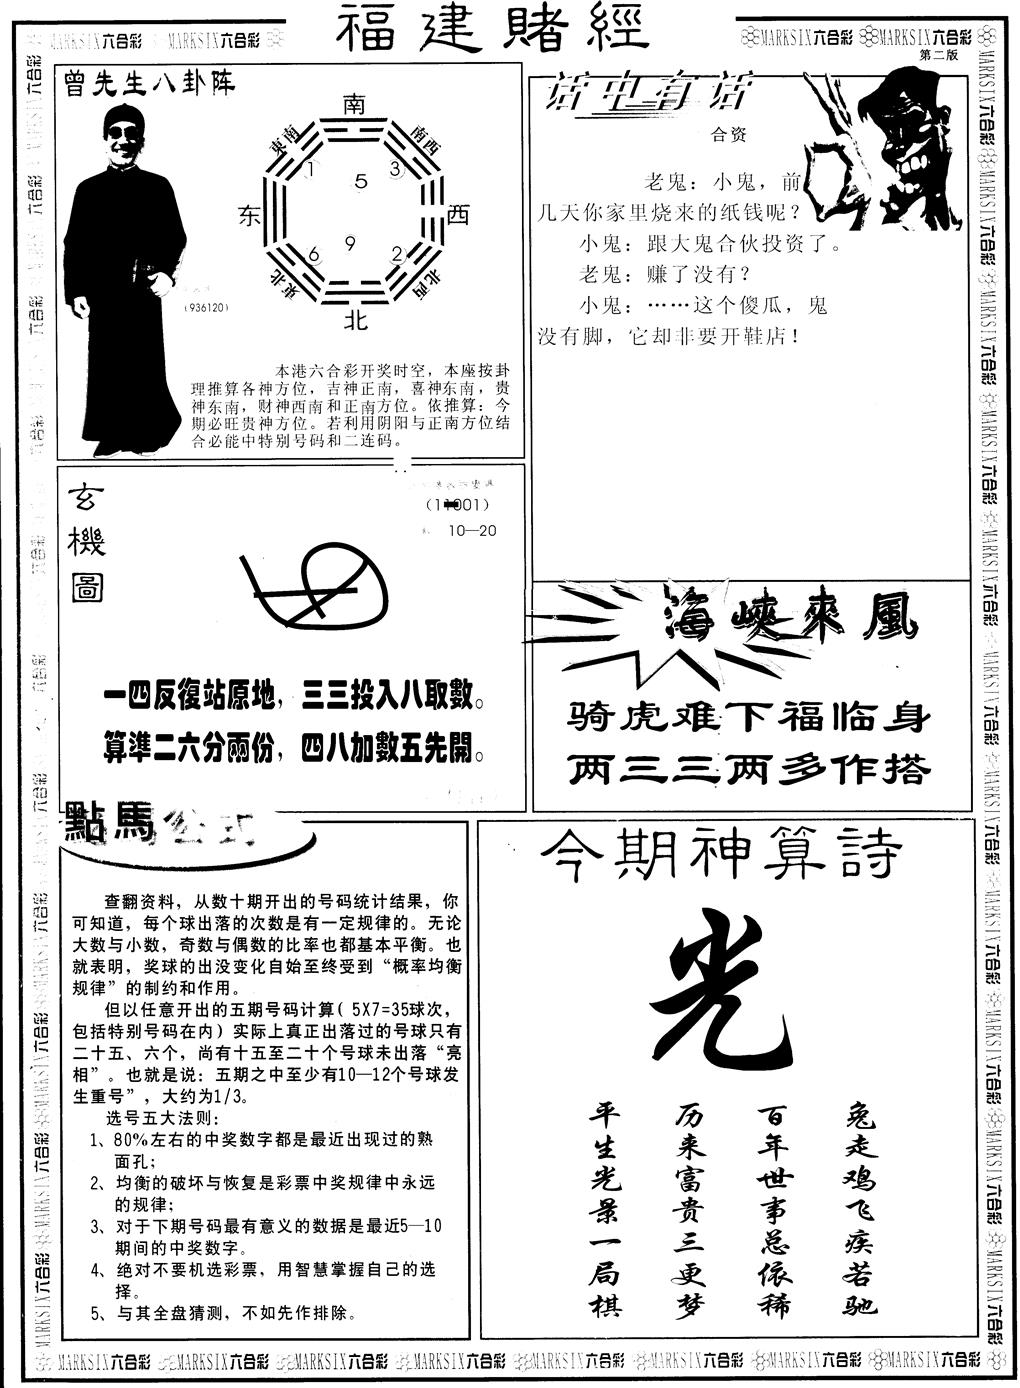 福建賭經
MARKSIX六合彩 MARKSIX六合彩
MARKSIX六合彩 MARKSIX六合彩
第二版
曾先生八卦阵
南
東南 南西
1 5 3
东 西
6 9 2
東北 北西
北
(936120)
本港六合彩开奖时空，本座按卦
理推算各神方位，吉神正南，喜神东南，贵
神东南，财神西南和正南方位。依推算：今
期必旺贵神方位。若利用阴阳与正南方位结
合必能中特别号码和二连码。
话中有话
合资
老鬼：小鬼，前
几天你家里烧来的纸钱呢？
小鬼：跟大鬼合伙投资了。
老鬼：赚了没有？
小鬼：……这个傻瓜，鬼
没有脚，它却非要开鞋店！
玄機圖
10—20
一四反復站原地，三三投入八取數。
算準二六分兩份，四八加數五先開。
海峽來風
骑虎难下福临身
两三三两多作搭
點馬公式
查翻资料，从数十期开出的号码统计结果，你
可知道，每个球出落的次数是有一定规律的。无论
大数与小数，奇数与偶数的比率也都基本平衡。也
就表明，奖球的出没变化自始至终受到“概率均衡
规律”的制约和作用。
但以任意开出的五期号码计算( 5X7=35球次，
包括特别号码在内）实际上真正出落过的号球只有
二十五、六个，尚有十五至二十个号球未出落“亮
相”。也就是说：五期之中至少有10—12个号球发
生重号”，大约为1/3。
选号五大法则：
1、80%左右的中奖数字都是最近出现过的熟
面孔；
2、均衡的破坏与恢复是彩票中奖规律中永远
的规律；
3、对于下期号码最有意义的数据是最近5—10
期间的中奖数字。
4、绝对不要机选彩票，用智慧掌握自己的选
择。
5、与其全盘猜测，不如先作排除。
今期神算詩
光
兔走鸡飞疾若驰
百年世事总依稀
历来富贵三更梦
平生光景一局棋
MARKSIX六合彩 MARKSIX六合彩 MARKSIX六合彩 MARKSIX六合彩 MARKSIX六合彩 MARKSIX六合彩 MARKSIX六合彩 MARKSIX六合彩